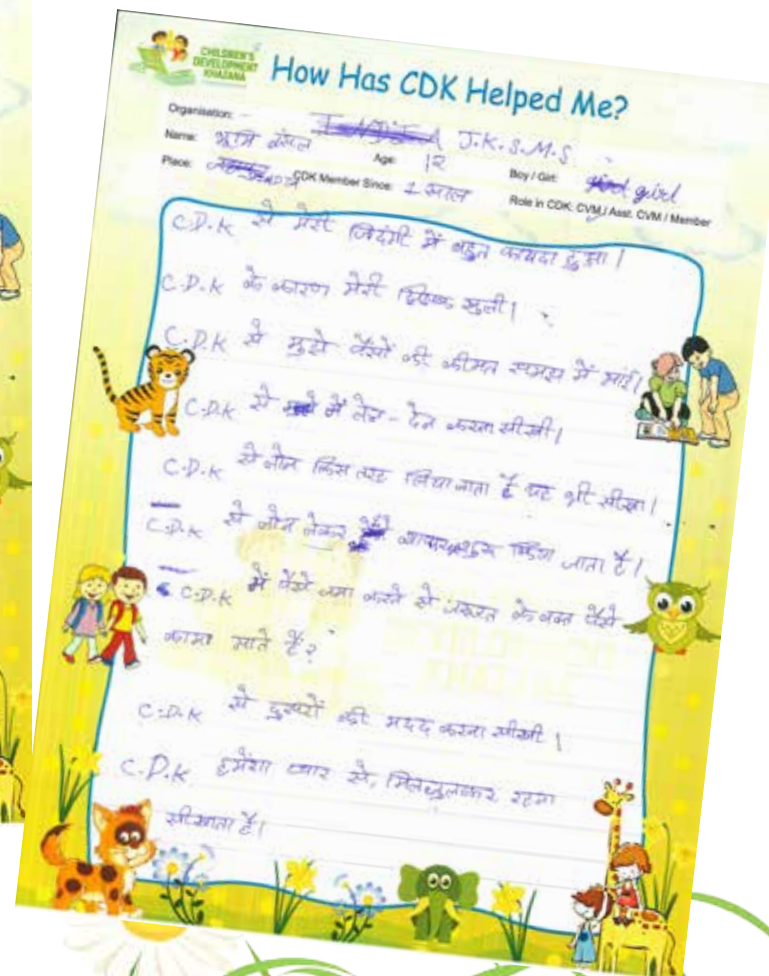 CHILDREN'S
DEVELOPMENT
KHAZANA
How Has CDK Helped Me?
Organisation: J.K.S.M.S.
Name: भूमि Age: 12 Boy / Girl: girl
Place: CDK Member Since: 1 साल Role in CDK: CVM / Asst. CVM / Member
C.D.K से मेरी जिदंगी में बहुत फायदा हुआ।
C.D.K के कारण मेरी झिझक खुली।
C.D.K से मुझे पैसों की कीमत समझ में आई।
C.D.K से में लेन - देन करना सीखी।
C.D.K से लोन किस तरह लिया जाता है यह भी सीखा।
C.D.K से लोन लेकर किया जाता है।
C.D.K में पैसे जमा करने से जरूरत के वक्त पैसे
काम आते है?
C.D.K से दुसरों की मदद करना सीखी।
C.D.K हमेंशा प्यार से, मिलजुलकर रहना
सीखाता है।